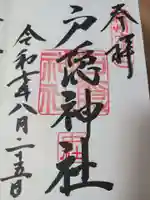 奉拝
戸隠神社
令和 年八月二十五日